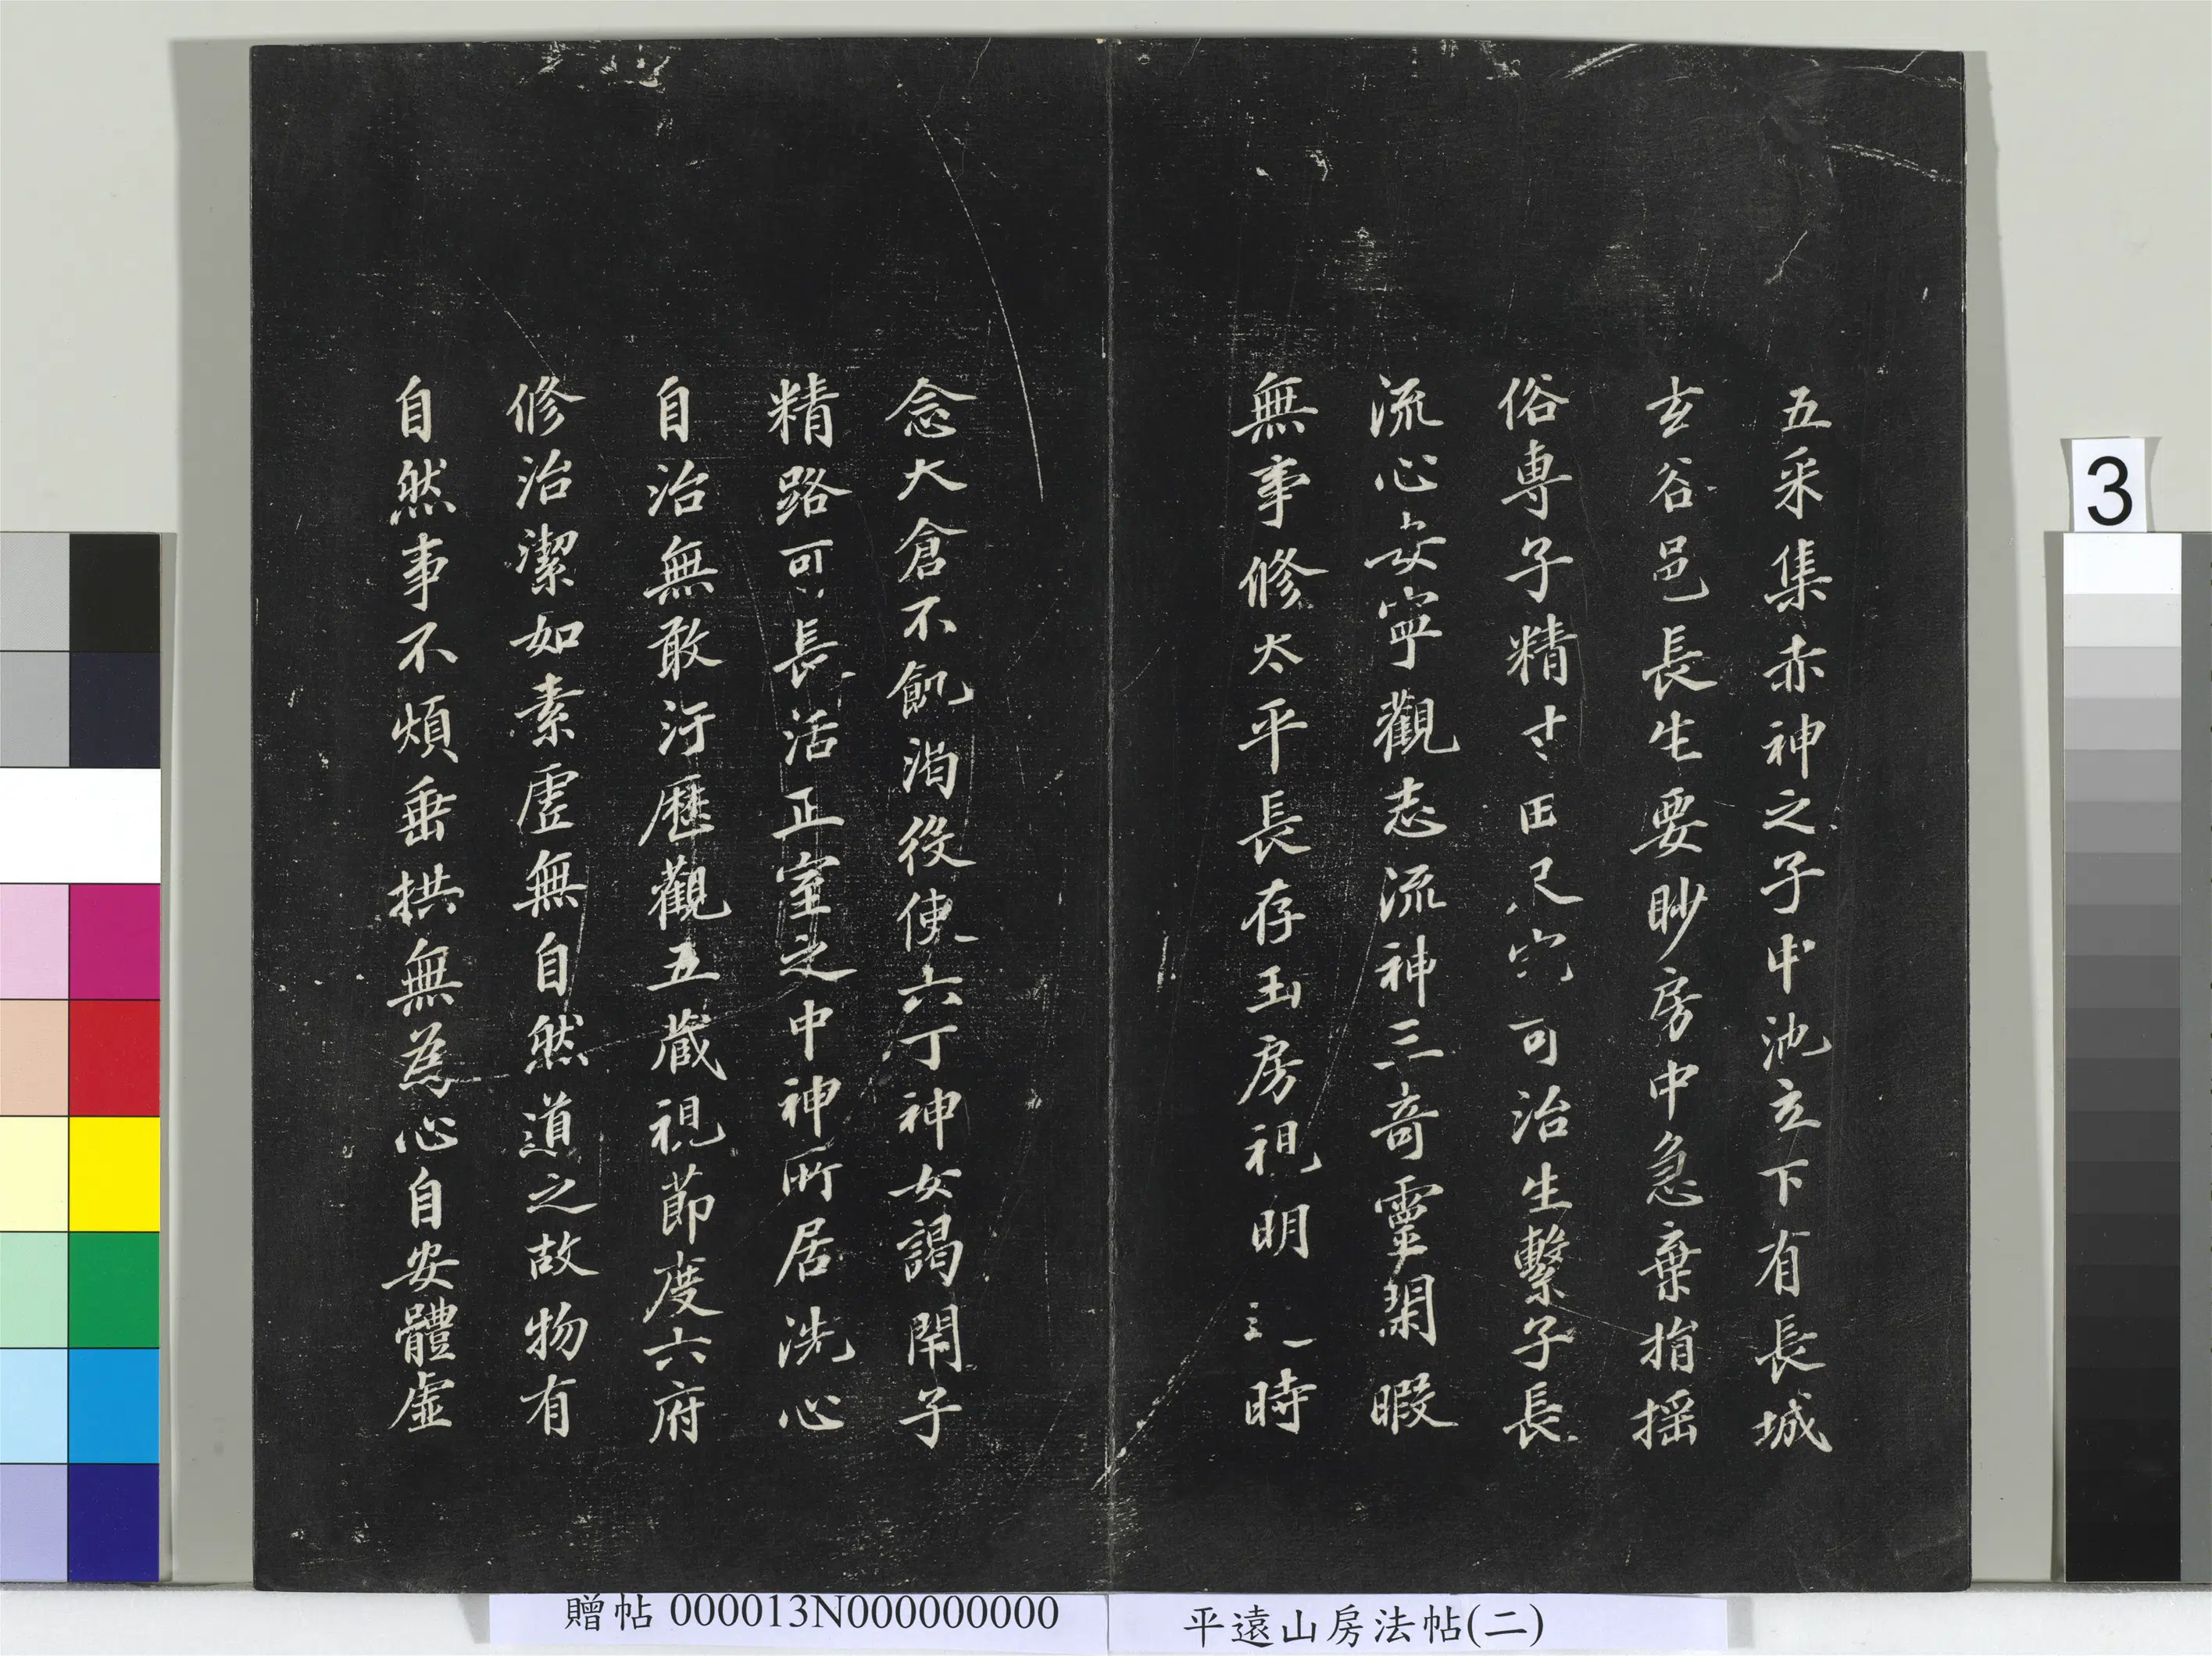 五采集赤神之子中池立下有長城
玄谷邑長生要眇房中急棄捐揺
俗専子精寸田尺穴可治生繫子長
流心安寧觀志流神三奇靈閑暇
無事修太平長存玉房視明
時
念大倉不飢渴役使六丁神女謁閇子
精路可長活正室之中神所居洗心
自治無敢汙歷觀五藏視節度六府
修治潔如素虛無自然道之故物有
自然事不煩垂拱無為心自安體虛
3
贈帖 000013N000000000
平遠山房法帖(二)